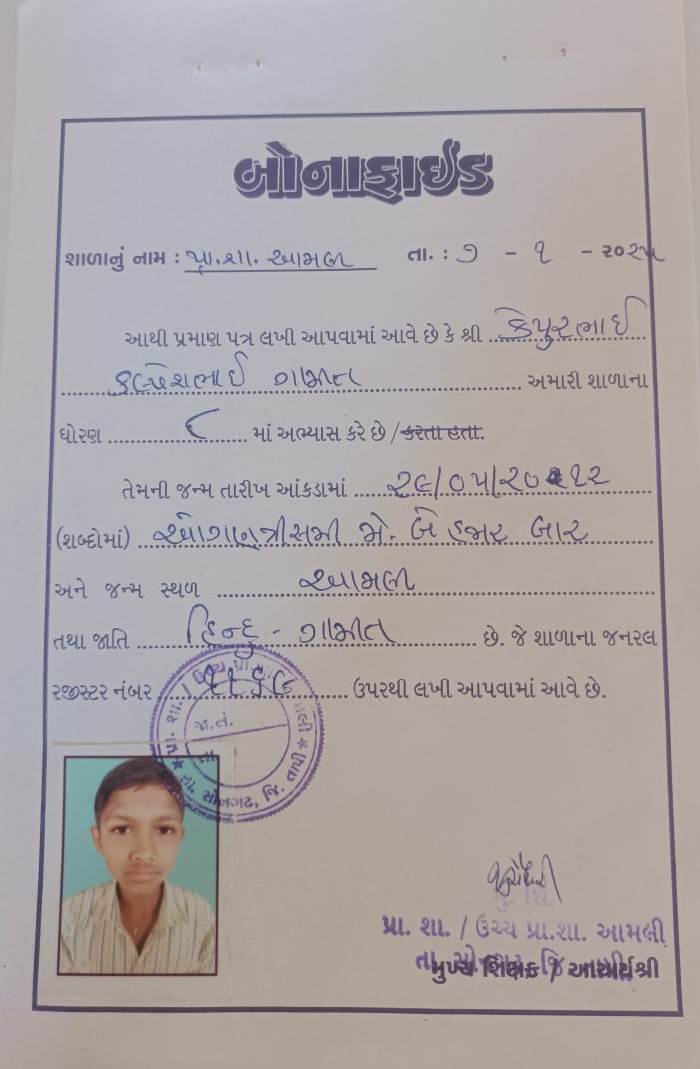 બોનાફાઈડ
શાળાનું નામ : પ્રા.શા. આમલી તા. : ૭ - ૧ - ૨૦૨૫
આથી પ્રમાણ પત્ર લખી આપવામાં આવે છે કે શ્રી કેયુરભાઈ
કલ્પેશભાઈ ગામીત અમારી શાળાના
ધોરણ ૮ માં અભ્યાસ કરે છે / કરતા હતા.
તેમની જન્મ તારીખ આંકડામાં ૨૯/૦૫/૨૦૧૨
(શબ્દોમાં) ઓગણત્રીસમી મે. બે હજાર બાર
અને જન્મ સ્થળ આમલી
તથા જાતિ હિન્દુ - ગામીત છે. જે શાળાના જનરલ
રજીસ્ટર નંબર ૧૧૬૯ ઉપરથી લખી આપવામાં આવે છે.
પ્રા. શા. / ઉચ્ચ પ્રા. આમલી
જા.નં.
તા.
તા. સોનગઢ, જિ. તાપી
પ્રા. શા. / ઉચ્ચ પ્રા.શા. આમલી
મુખ્ય શિક્ષક / આચાર્યશ્રી